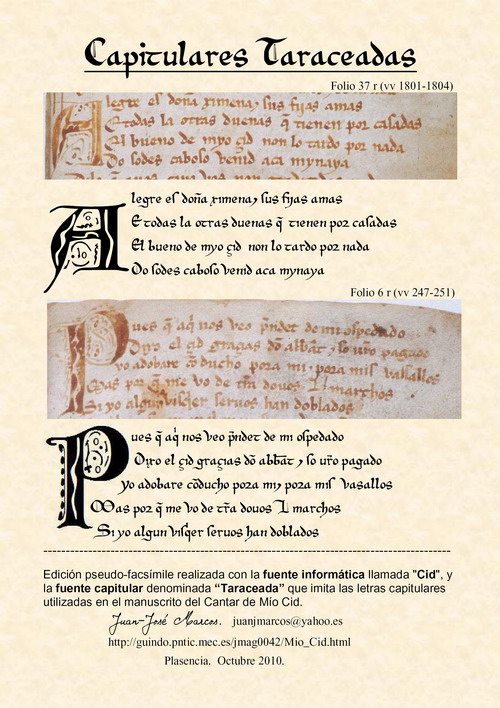 Capitulares Taraceadas
Folio 37 r (vv 1801-1804)
Alegre el doña ximena, sus fijas amas
E todas la otras duenas q̃ tienen por casadas
El bueno de myo çid non lo tardo por nada
Do sodes caboso venid aca mynaya
Alegre es doña ximena, sus fijas amas
E todas la otras duenas q̃ tienen por casadas
El bueno de myo çid non lo tardo por nada
Do sodes caboso venid aca mynaya
Folio 6 r (vv 247-251)
Pues q̃ aq̃ nos veo p̃ndet de mi ospedado
Dixo el çid graçias dõ abbat, so ur̃o pagado
yo adobare cõducho pora mi, pora mis vasallos
Mas por q̃ me vo de tr̃a douos L marchos
Si yo algun visq̃er seruos han doblados
Pues q̃ aq̃ nos veo p̃ndet de mi ospedado
Dixo el çid graçias dõ abbat, so ur̃o pagado
yo adobare cõducho pora mi, pora mis vasallos
Mas por q̃ me vo de tr̃a douos L marchos
Si yo algun visqer seruos han doblados
Edición pseudo-facsímile realizada con la fuente informática llamada "Cid", y
la fuente capitular denominada “Taraceada” que imita las letras capitulares
utilizadas en el manuscrito del Cantar de Mío Cid.
Juan-José Marcos. juanjmarcos@yahoo.es
http://guindo.pntic.mec.es/jmag0042/Mio_Cid.html
Plasencia. Octubre 2010.